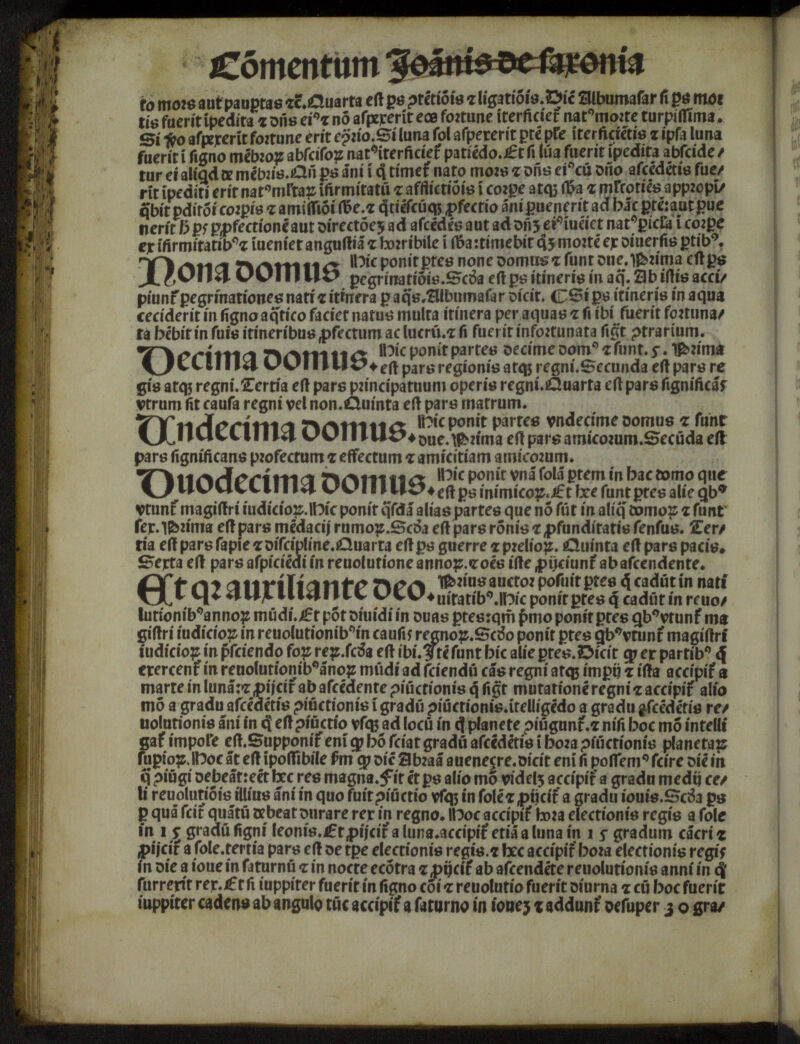 Cõmentum Joãnis de saxonia
to mors aut paupertas ⁊c̃. Quarta est ps ɔtẽtiõis ⁊ ligatiõis. Dic̃ Albumasar si ps mor
tis fuerit ĩpedita ⁊ dñs ei⁹ ⁊ nõ aspexerit eos fortune ĩterficiet̃ nat⁹ morte turpissima.
Si ỽo aspexerit fortune erit
Si luna sol aspexerit
ĩterficiẽtis ⁊ ipsa luna
fuerit ĩ signo mẽbroꝝ abscisoꝝ nat⁹ iterficiet̃ patiẽdo. Et si lũa fuerit ĩpedita abscide/
tur ei aliq̃d de mẽbris. Qñ ps ãni ĩ q̃ timet̃ nato mors ⁊ dñs ei⁹ cũ dño ascẽdẽtis fue/
rit ĩpediti erit nat⁹ mĩtaꝝ ĩfirmitatũ ⁊ afflictiõis ĩ corpe atqꝫ
nerit
ex ĩfirmitatib⁹ ⁊ ĩueniet angustiã ⁊ horribile ĩ
timebit qꝫ mortẽ ex diuersis ptib⁹.
Nona domus Hic ponit ptes none domus ⁊ sunt due. Prima est ps
pegrinatiõis. Scða est ps itineris in aq̃. Ab istis acci/
piunt̃ pegrinationes nati ⁊ itinera p aq̃s. Albumasar dicit. ¶ Si ps itineris in aqua
ceciderit in signo aq̃tico faciet natus multa itinera per aquas ⁊ si ibi fuerit fortuna/
ta hẽbit in suis itineribus ꝓfectum ac lucrũ. ⁊ si fuerit infortunata sig̃t ɔtrarium.
Decima domus. Hic ponit partes decime dom⁹ ⁊ sunt. 5. Prima
est pars regionis atqꝫ regni. Secunda est pars re
gis atqꝫ regni. Tertia est pars principatuum operis regni. Quarta est pars significãs
vtrum sit causa regni vel non. Quinta est pars matrum.
Undecima domus. Hic ponit partes vndecime domus ⁊ sunt
due. Prima est pars amicorum. Secũda est
pars significans profectum ⁊ effectum ⁊ amicitiam amicorum.
Duodecima domus. Hic ponit vnã solã ptem in hac domo que
est ps inimicoꝝ. Et hee sunt ptes alie q̃b⁹
vtunt̃ magistri iudicioꝝ. Hic ponit q̃sdã alias partes que nõ sũt in aliq̃ domoꝝ ⁊ sunt
sex. Prima est pars mẽdacij rumoꝝ. Scða est pars rõnis ⁊ ꝓfunditatis sensus. Ter/
tia est pars sapiẽ ⁊ discipline. Quarta est ps guerre ⁊ prelioꝝ. Quinta est pars pacis.
Sexta est pars aspiciẽdi in reuolutione annoꝝ. ⁊ oẽs iste ꝓijciunt̃ ab ascendente.
Et qꝛ auxiliante deo. Prius auctor posuit ptes q̃ cadũt in nati
uitatib⁹. Hic ponit ptes q̃ cadũt in reuo/
lutionib⁹ annoꝝ mũdi. Et põt diuidi in duas ptes: qm̃ p̃mo ponit ptes q̃b⁹ vtunt̃ ma
gistri iudicioꝝ in reuolutionib⁹ in causis regnoꝝ. Scðo ponit ptes q̃b⁹ vtunt̃ magistri
iudicioꝝ in p̃sciendo
scða est ibi.
hic alie ptes. Dicit ꝙ ex partib⁹ q̃
exercent̃ in reuolutionib⁹ ãnoꝝ mũdi ad sciendũ cãs regni atqꝫ impij ⁊ ista accipit̃ a
marte in lunã: ⁊ ꝓijcit̃ ab ascẽdente ɔiũctionis q̃ sig̃t mutationẽ regni ⁊ accipit̃ alio
mõ a gradu ascẽdẽtis ɔiũctionis ĩ gradũ ɔiũctionis. ĩtelligẽdo a gradu ascẽdẽtis re/
uolutionis ãni in q̃ est ɔiũctio vsqꝫ ad locũ in q̃ planete ɔiũgunt̃. ⁊ nisi hoc mõ intelli
gat̃
est. Supponit̃ eni ꝙ hõ sciat gradũ ascẽdẽtis ĩ hora ɔiũctionis planetaꝝ
supioꝝ. Hoc ãt est ĩpossibile
ꝙ dic̃ Abraã auenezre. dicit eni si possem⁹ scire diẽ in
q̃ ɔiũgi debeãt: eẽt hec res magna. Fit ẽt ps alio mõ videlꝫ accipit̃ a gradu medij ce/
li reuolutiõis illius ãni in quo fuit ɔiũctio vsqꝫ in solẽ ⁊ ꝓijcit̃ a gradu iouis. Scða ps
p quã scit̃ quãtũ debeat durare rex in regno. Hoc accipit̃ hora electionis regis a sole
in 15 gradũ signi leonis. Et ꝓijcit̃ a luna. accipit̃ etiã a luna in 15 gradum cãcri ⁊
ꝓijcit̃ a sole. tertia pars est de tpe electionis regis. ⁊ hec accipit̃ hora electionis regis
in die a ioue in saturnũ ⁊ in nocte ecõtra ⁊ ꝓijcit̃ ab ascendẽte reuolutionis anni in q̃
surrexit rex. Et si iuppiter fuerit in signo cõi ⁊ reuolutio fuerit diurna ⁊ cũ hoc fuerit
iuppiter cadens ab angulo tũc accipit̃ a saturno in iouеꝫ ⁊ addunt̃ desuper 30 gra/